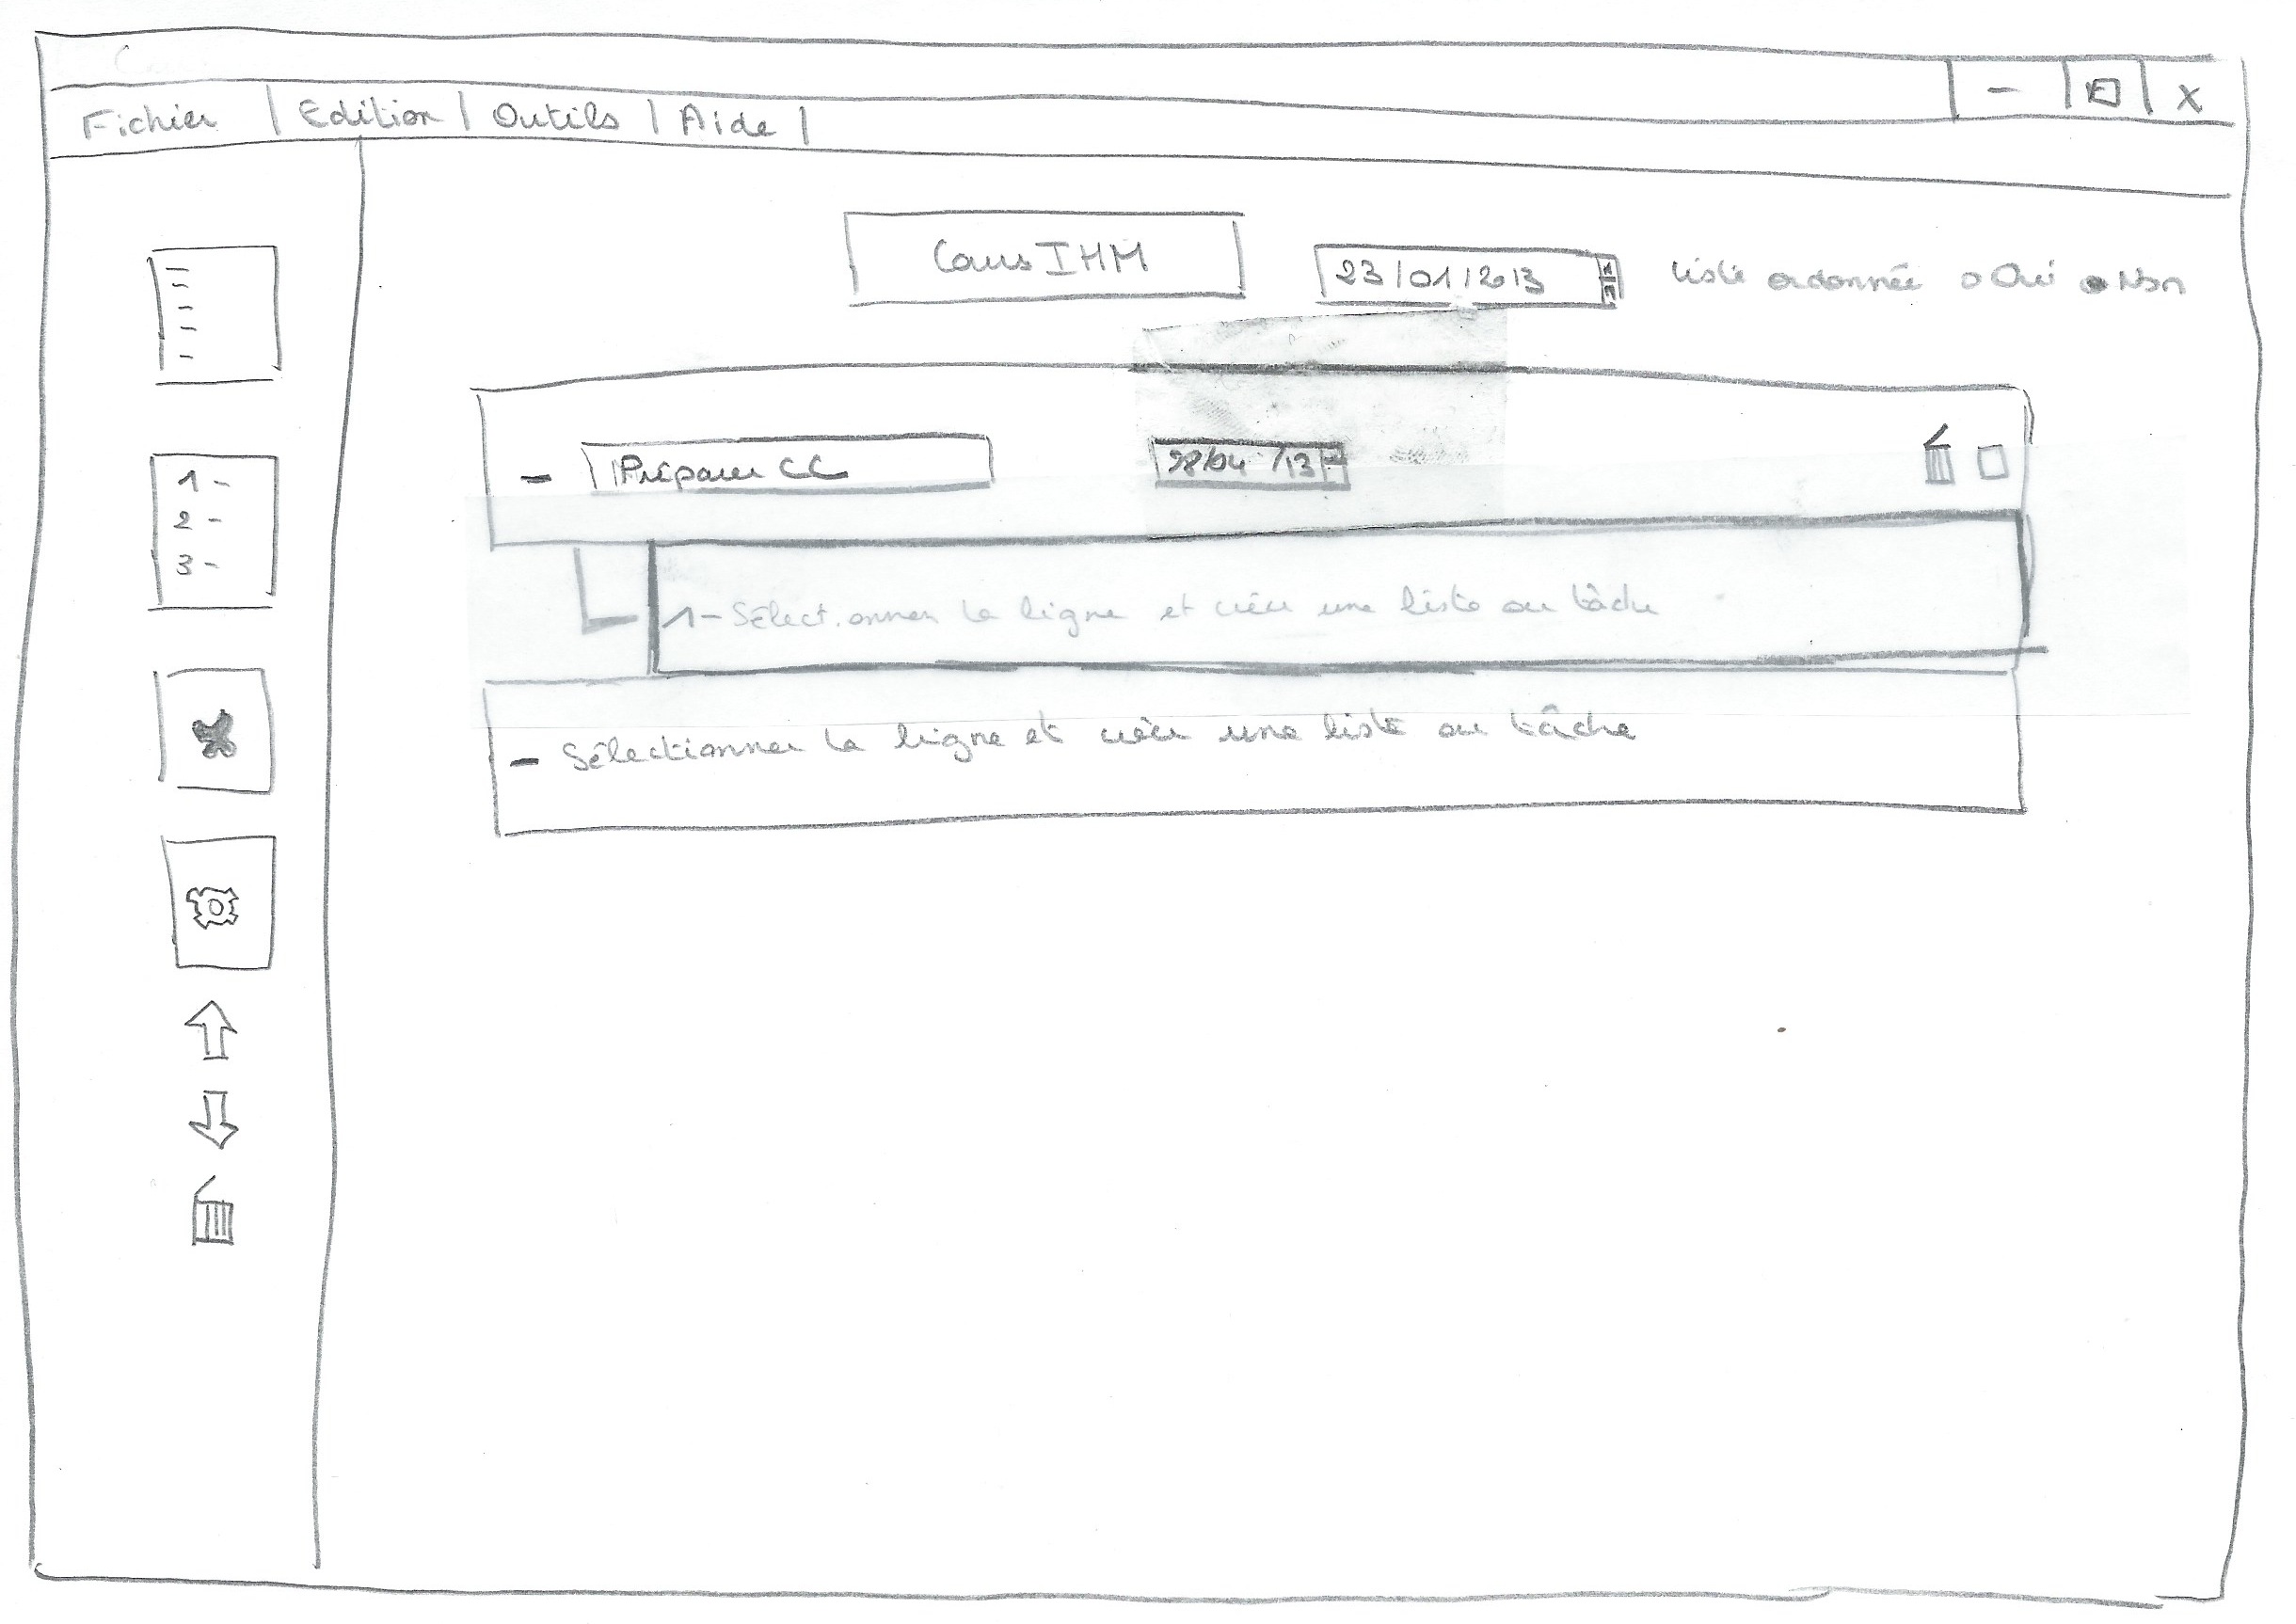 Fichier | Edition | Outils | Aide |
- X
Cours IHM
23/01/2013
Liste ordonnée o Oui • Non
1-
2-
3-
- Préparer CC
/04/13
1- Sélectionner la ligne et créer une liste ou tâche
- Sélectionner la ligne et créer une liste ou tâche